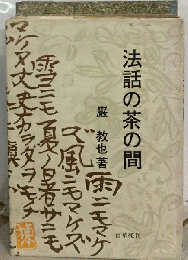 法話の茶の間
巌 教也著
雨ニモマケ
ズ風ニモマケズ
雪ニモ夏ノ暑サニモ
マケヌ丈夫ナカラダヲモチ